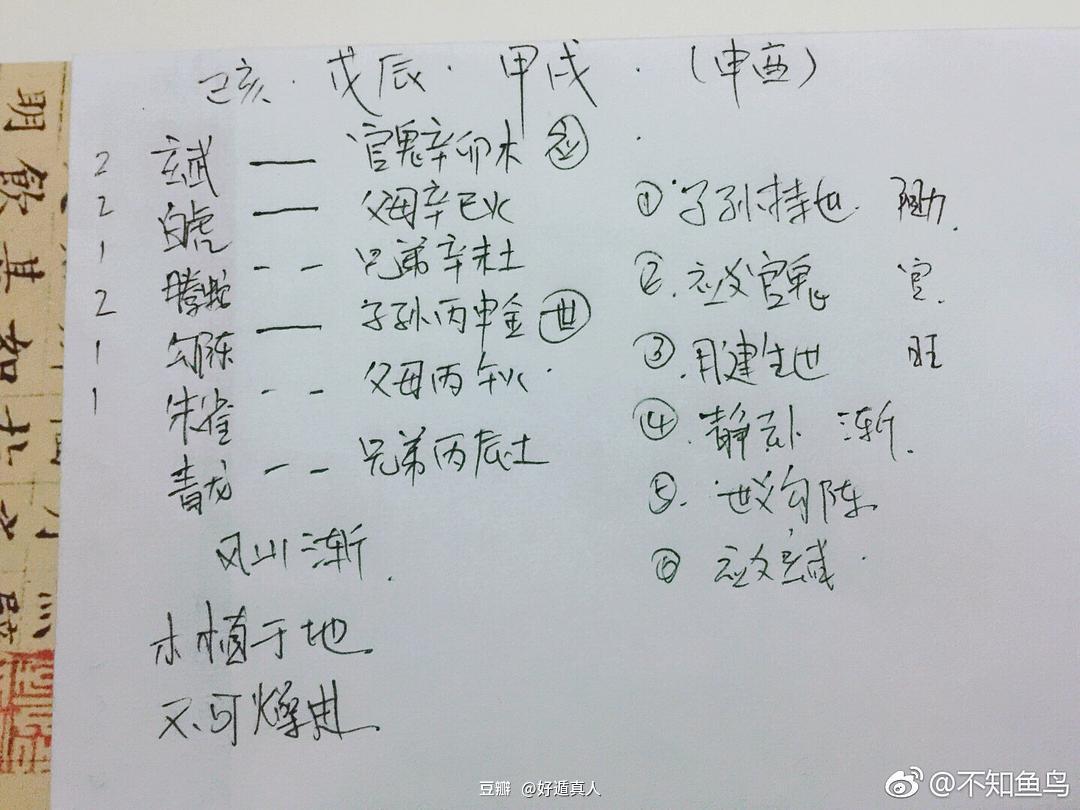 己亥.戊辰.甲戌.(申酉)
2 玄武 官鬼辛卯木 应
2 白虎 父母辛巳火
1 腾蛇 兄弟辛未土
2 勾陈 子孙丙申金 世
1 朱雀 父母丙午火
1 青龙 兄弟丙辰土
风山渐.
木植于地
不可燥进.
① 子孙持世. 阻力.
②. 应爻官鬼 官.
③. 月建生世 旺
④. 静卦 渐.
⑤. 世爻勾陈
⑥ 应爻玄武.
明
飲
其
如
豆瓣 @好遁真人
@不知鱼鸟